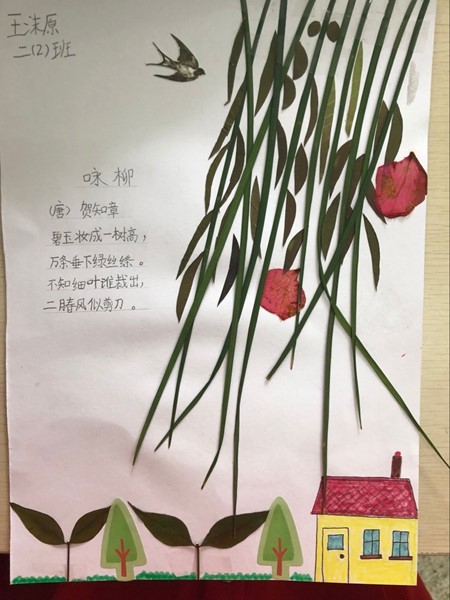 王洣原
二(2)班
咏柳
(唐) 贺知章
碧玉妆成一树高,
万条垂下绿丝绦。
不知细叶谁裁出,
二月春风似剪刀。